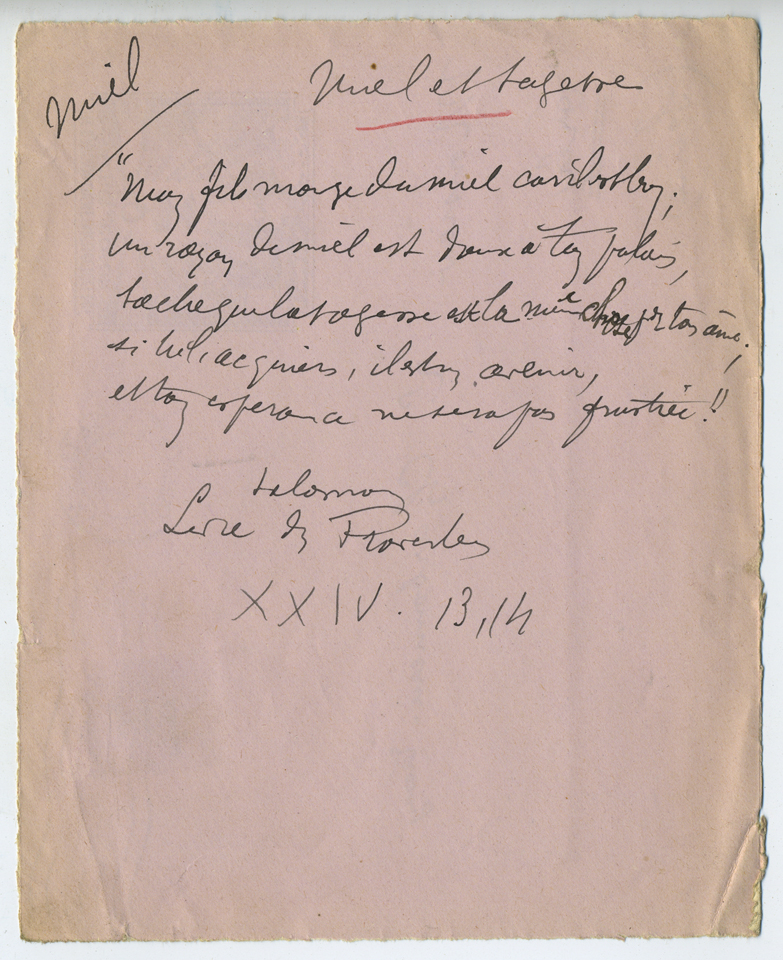 Miel
Miel et sagesse
"Mon fils mange du miel car il est bon;
un rayon de miel est doux à ton palais,
sache que la sagesse est la même chose pr ton âme;
si tu l'acquiers, il est un avenir,
et ton espérance ne sera pas frustrée."
Salomon
Livre des Proverbes
XXIV. 13,14